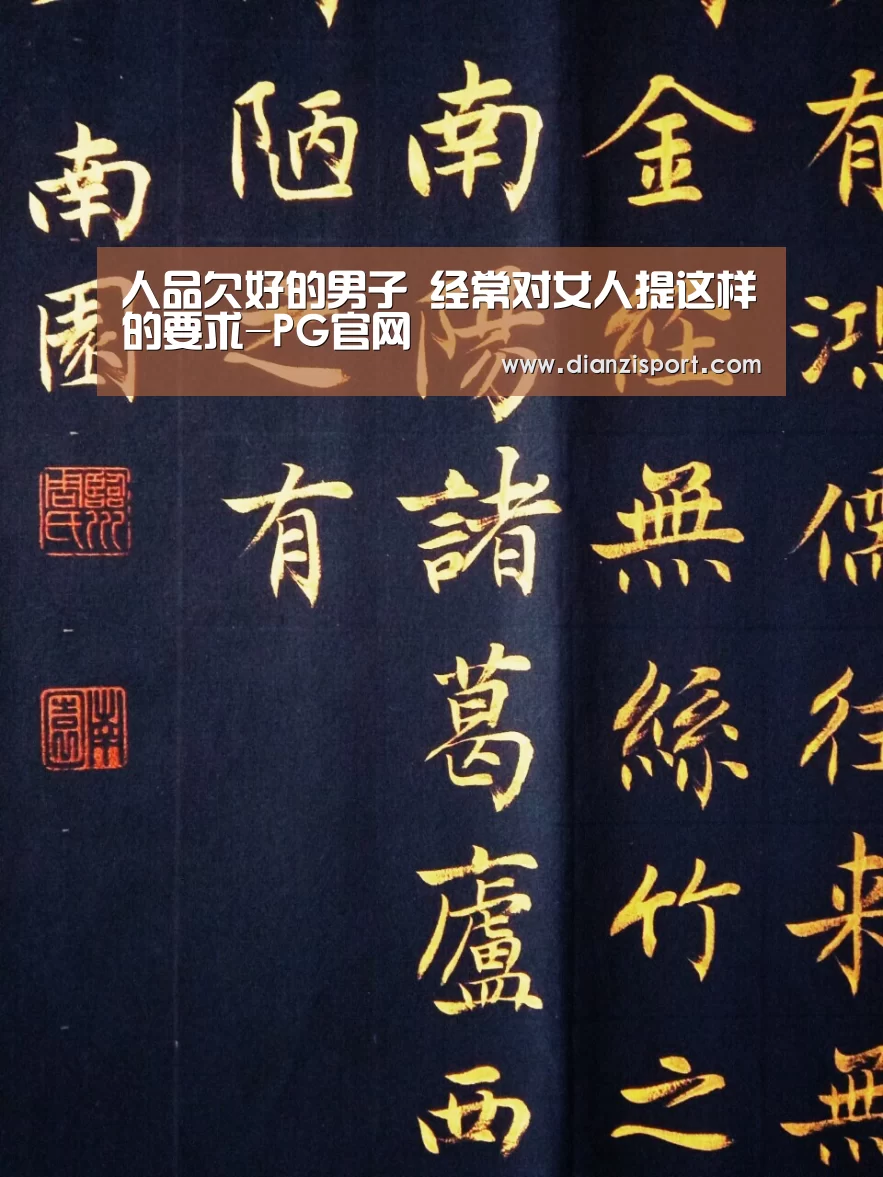 人品欠好的男子 经常对女人提这样
的要求-PG官网
www.dianzisport.com
有鴻儒往来無
金經無絲竹之
南陽諸葛廬西
陋之有
南園
南園